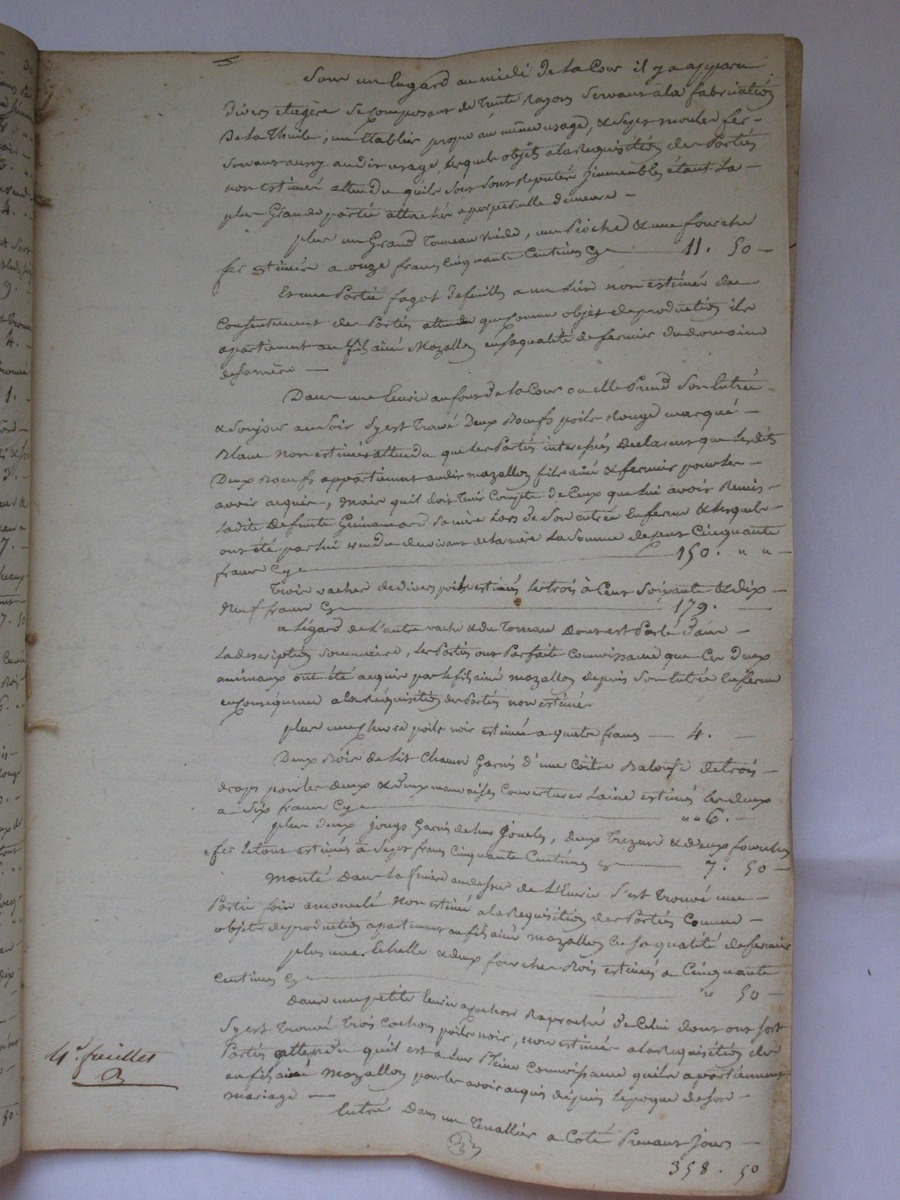 Sous un engard au midi de la Cour il y a apparu
divers etagère se composant de trente Rayons servant a la fabrication
de la thuile, un Etablier propre au même usage, & sept moules fer
servant aussy audit usage, lesquels objets a la requisition des Parties
non estimés attendu quils sont sous Reputés Jmmeubles étant la
plus Grande partie attachés a perpetuelle demeure
plus un Grand Tonneau vuide, une Pioche & une fourche
fer estimés a onze francs Cinquante Centimes Cy 11. 50
Et une Partie fagot de feuilles a un Lien non estimés du
Consentement des Parties attendu que comme objet de production ils
apartienent au fils ainé Mazallon en sa qualité de fermier du domaine
de sa mère
Dans une Ecurie au fond de la Cour ou elle Prend son Entrée
& son jour au soir s'y est trouvé Deux Bœufs poils Rouge marqué
Blanc non estimés attendu que les Parties interessées Declarent que lesdits
Deux Bœufs appartienent audit mazallon fils ainé & fermier pour les
avoir acquis, mais quil doit tenir Compte de Ceux que lui avoit Remis
ladite Defunte sa mère Lors de son entrée En ferme & lesquels
ont été par lui vendu du vivant de sa mère La somme de cent Cinquante
francs Cy 150. " "
Trois vaches de divers poils estimés les trois à Cent Soixante & dix
Neuf francs Cy 179.
a Légard de L'autre vache & du Toreau dont est Parlé dans
la description sommaire, les Parties ont Parfaite Connoissance que Ces Deux
animaux ont été acquis par le fils ainé mazallon depuis son Entrée En ferme
en Conséquence a la Réquisition des Parties non estimés
plus une Chevre poils noir estimée a quatre francs 4.
Deux Bois de Lit Chacun Garni d'une Coitre Balouse de trois
draps pour les deux & deux mauvaises Couvertures Laine estimés les deux
a Six francs Cy " 6.
plus deux jougs Garnis de leurs Jouclis, deux & deux fourches
fer le tout estimés à Sept francs Cinquante Centimes Cy 7. 50
Monté dans la feniere au dessus de L'Ecurie s'est trouvé une
Partie foin amoncelé Non estimé a la Requisition des Parties Comme
objets de production apartenant au fils ainé mazallon En sa qualité de fermier
plus une Echelle & deux fourches Bois estimés a Cinquante
centimes Cy " 50
Dans une petite Ecurie a Cochon Raproché de Celui dont on sort
s'y est trouvé trois Cochons poils noir, non estimés a la Requisition des
Parties attendu quil est a leur Pleine Connoissance quils apartienent
au fils ainé Mazallon pour les avoir acquis depuis lepoque de son
mariage
Entré Dans un Tenallier a Coté Prenant Jours
358. 50
4e feuillet